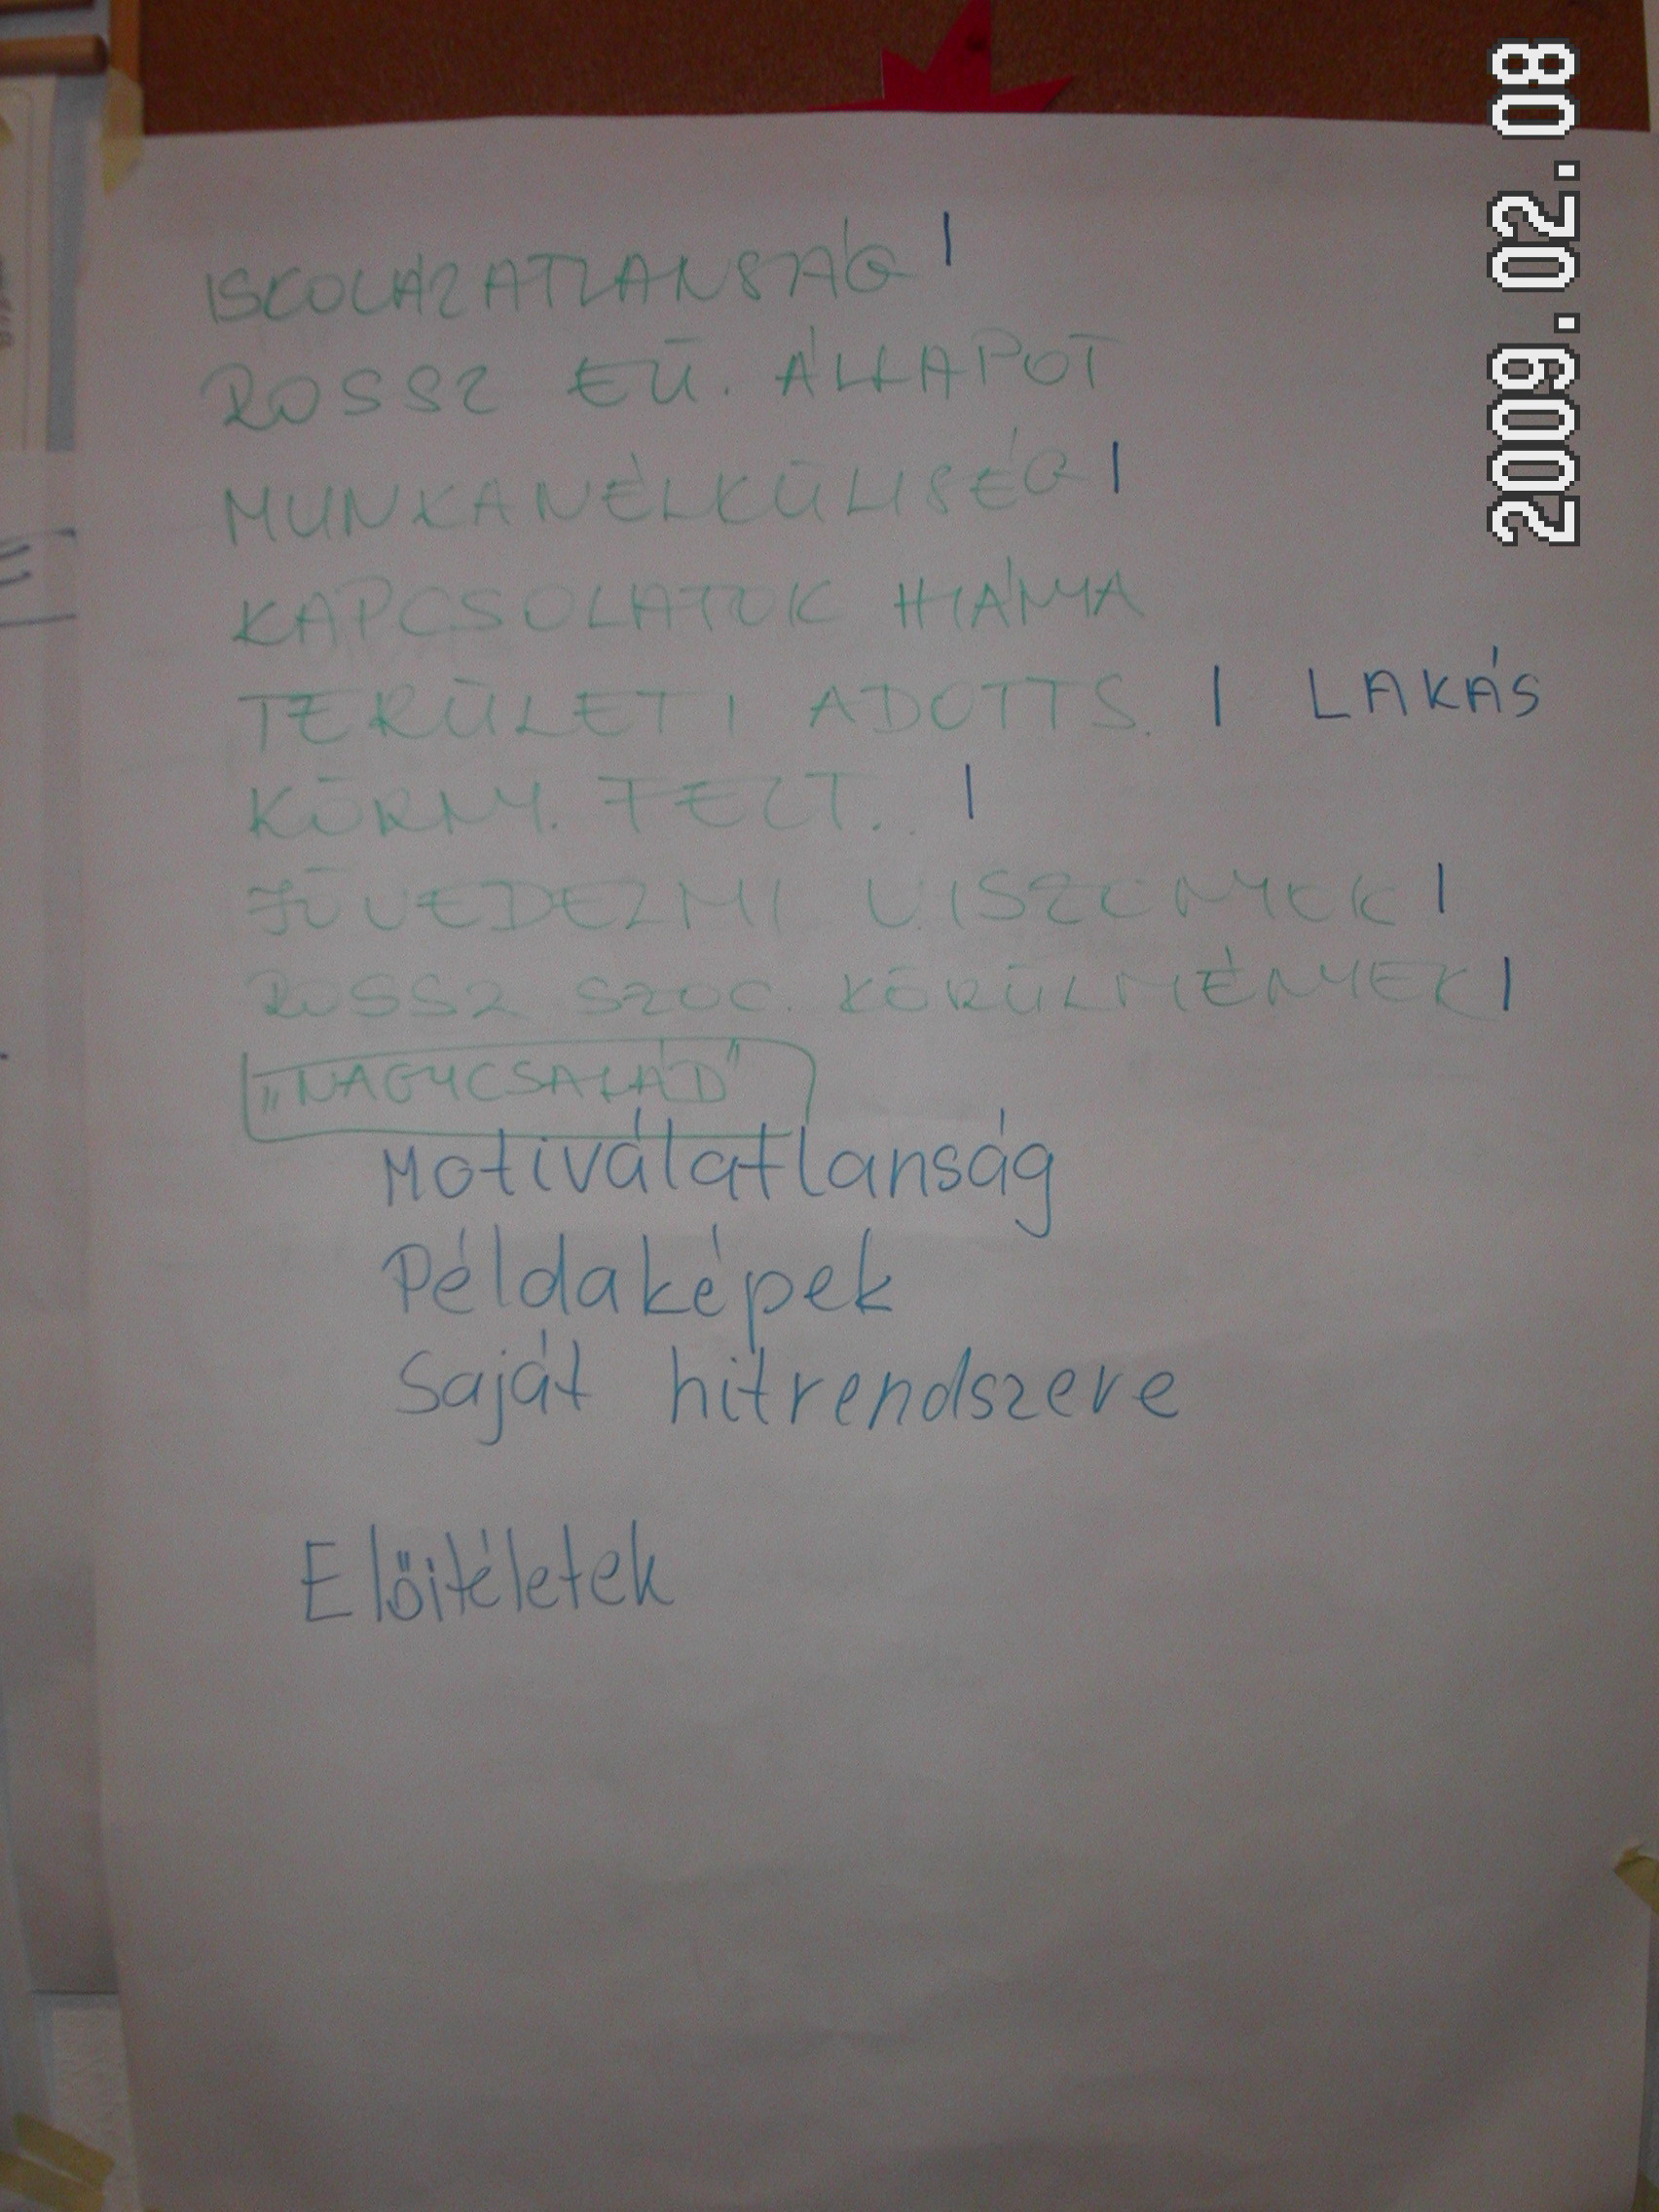 ISKOLÁZATLANSÁG |
ROSSZ EÜ. ÁLLAPOT
MUNKANÉLKÜLISÉG |
KAPCSOLATOK HIÁNYA
TERÜLETI ADOTTS. | LAKÁS
KÖRNY. FELT. |
JÖVEDELMI VISZONYOK |
ROSSZ SZOC. KÖRÜLMÉNYEK |
„NAGYCSALÁD"
Motiválatlanság
Példaképek
Saját hitrendszere
Előitéletek
2009.02.08